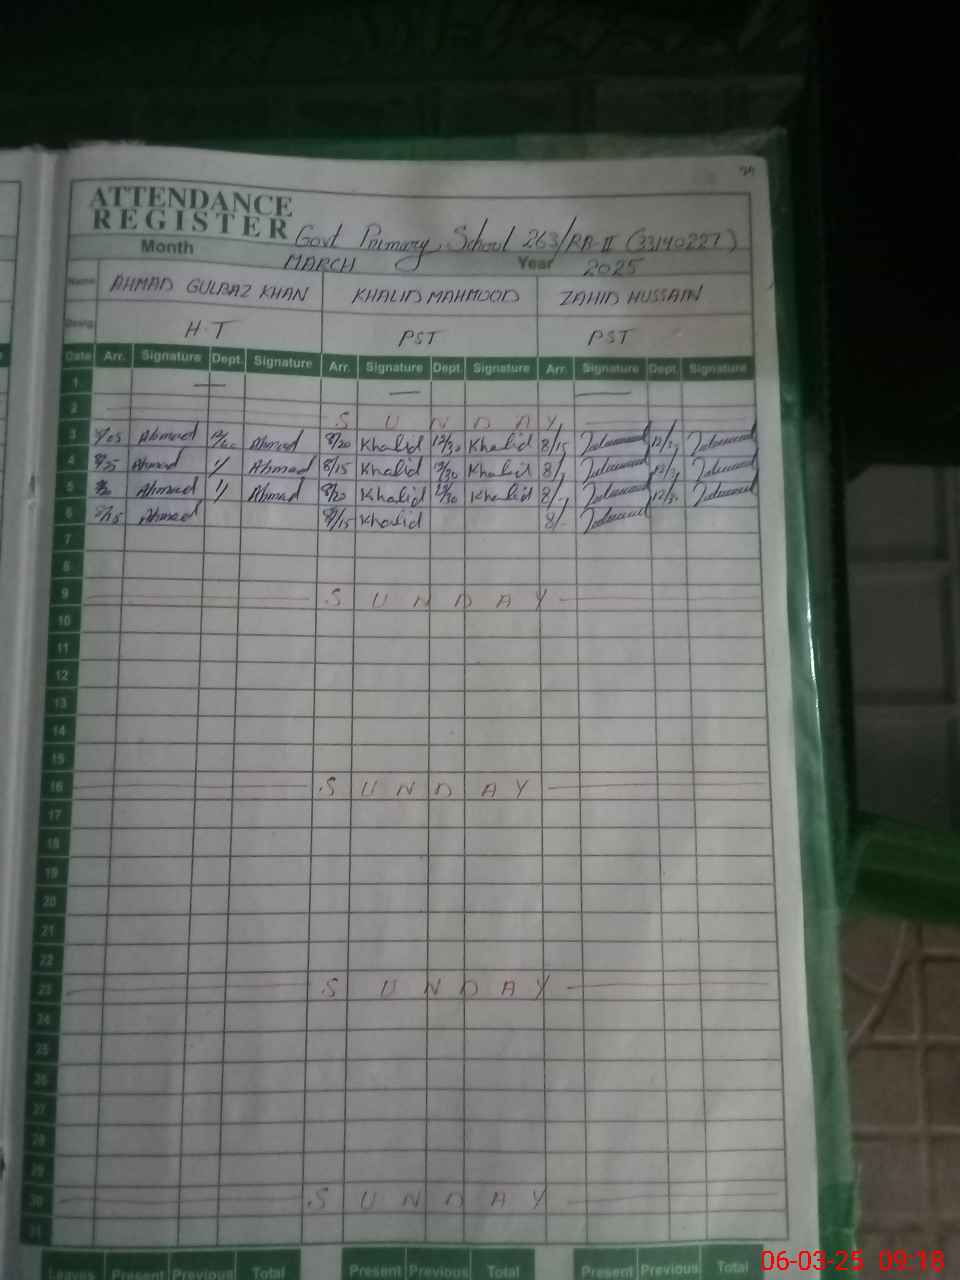 ATTENDANCE
REGISTER Govt Primary School 263/RB-II (33140227)
Month MARCH Year 2025
Name AHMAD GULBAZ KHAN KHALID MAHMOOD ZAHID HUSSAIN
Desig. H.T PST PST
Date Arr. Signature Dept. Signature Arr. Signature Dept. Signature Arr. Signature Dept. Signature
1 — — —
2 S U N D A Y
3 Ahmad Ahmad 8/20 Khalid 12/30 Khalid 8/15
4 8/25 Ahmad " Ahmad 8/15 Khalid 12/30 Khalid 8/-
5 Ahmad " Ahmad 8/20 Khalid 12/30 Khalid 8/-
6 8/15 Ahmad 8/15 Khalid 8/-
7
8
9 S U N D A Y
10
11
12
13
14
15
16 S U N D A Y
17
18
19
20
21
22
23 S U N D A Y
24
25
26
27
28
29
30 S U N D A Y
31
Present Previous Total Present Previous Total Present Previous Total
06-03-25 09:18